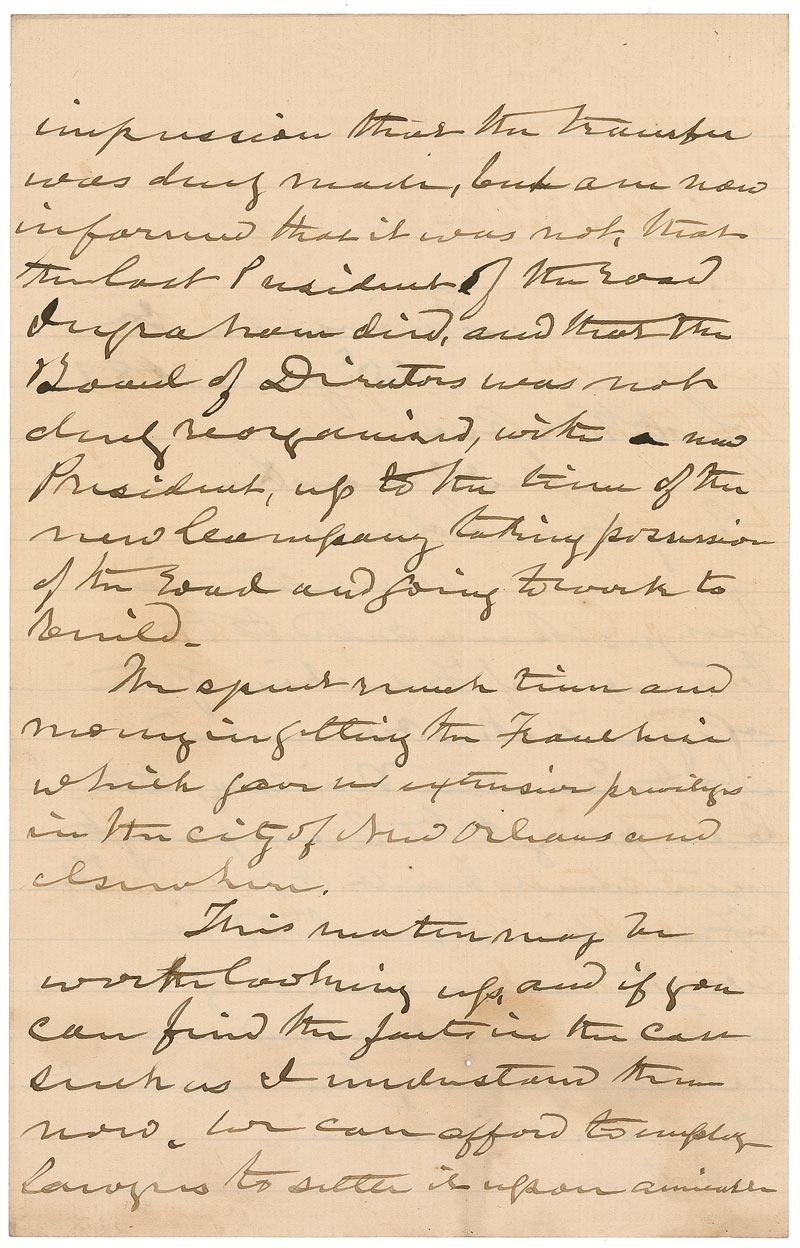 impression that the transfer
was duly made, but am now
informed that it was not, that
the last President of the Road
Ingraham died, and that the
Board of Directors was not
duly reorganised, with a new
President, up to the time of the
new Company taking possession
of the Road and going to work to
build.
We spent much time and
money in getting the Franchise
which gave us extensive privileges
in the city of New Orleans and
elsewhere.
This matter may be
worth looking up, and if you
can find the facts in the case
such as I understand them
now, we can afford to employ
lawyers to settle it upon amicable